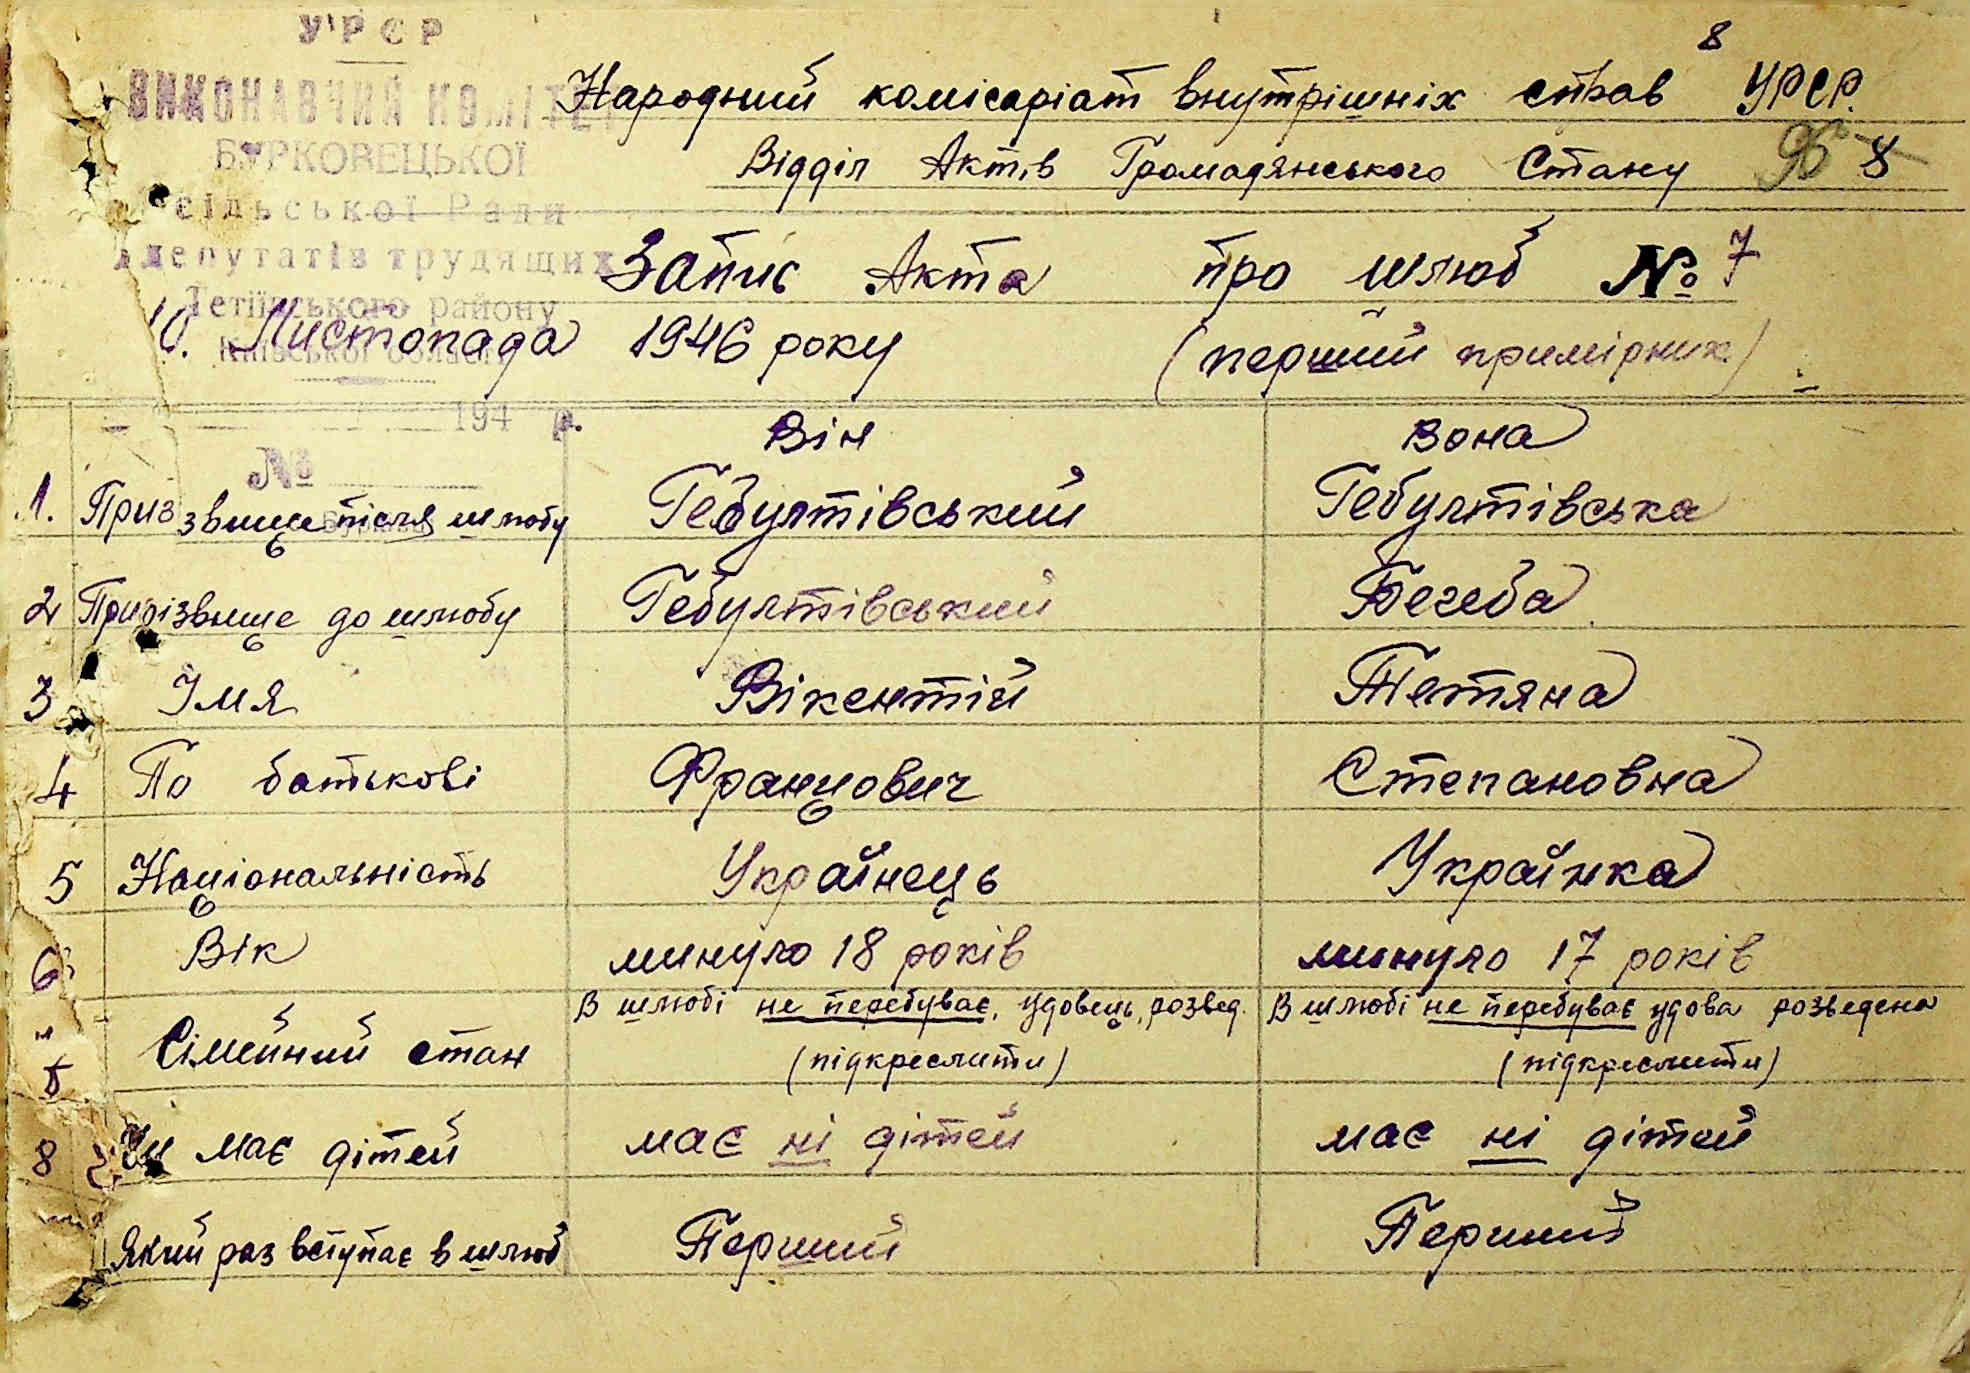 УРСР
ВИКОНАВЧИЙ КОМІТЕТ
БУРКОВЕЦЬКОЇ
сільської Ради
депутатів трудящих
Тетіївського району
Київської області
194 р.
№
8
Народний комісаріат внутрішніх справ УРСР.
Відділ Актів Громадянського Стану 8
Запис Акта про шлюб № 7
10. Листопада 1946 року (перший примірник)
Він Вона
1. Призвище після шлюбу Гебултівський Гебултівська
2 Призвище до шлюбу Гебултівський Бегеба
3 Імя Вікентій Тетяна
4 По батькові Францович Степановна
5 Національність Українець Українка
6 Вік минуло 18 років минуло 17 років
В шлюбі не перебуває, удовець, розвед. В шлюбі не перебуває удова розведена
Сімейний стан (підкреслити) (підкреслити)
8 Чи має дітей має ні дітей має ні дітей
Який раз вступає в шлюб Перший Перший